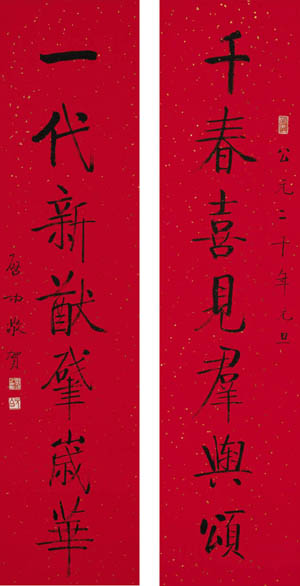 公元二千年元旦
千春喜見羣輿頌
一代新猷肇嵗華
启功敬賀